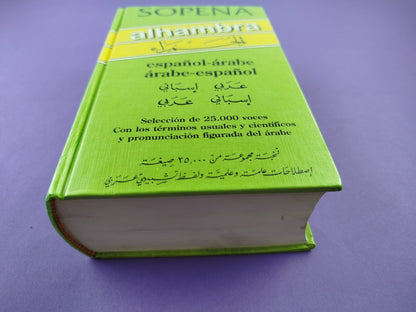 SOPENA
alhambra
الحمراء
español-árabe
árabe-español
عربي إسباني
إسباني عربي
Selección de 25.000 voces
Con los términos usuales y científicos
y pronunciación figurada del árabe
نخبة مجموعة من ٢٥,٠٠٠ صيغة
إصطلاحات علمية وعلمية ولفظ تشبيهي عربي